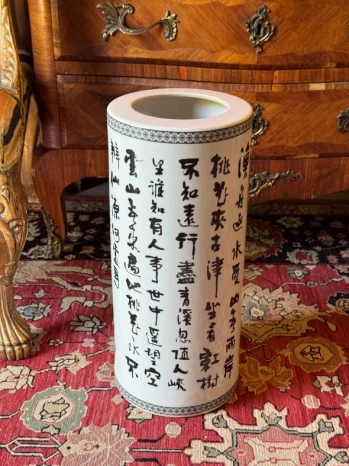 漁舟逐水愛山春兩岸
桃花夾古津坐看紅樹
不知遠行盡青溪忽值人峽
里誰知有人事世中遥望空
雲山春來遍地桃花水不
辨仙源何處尋